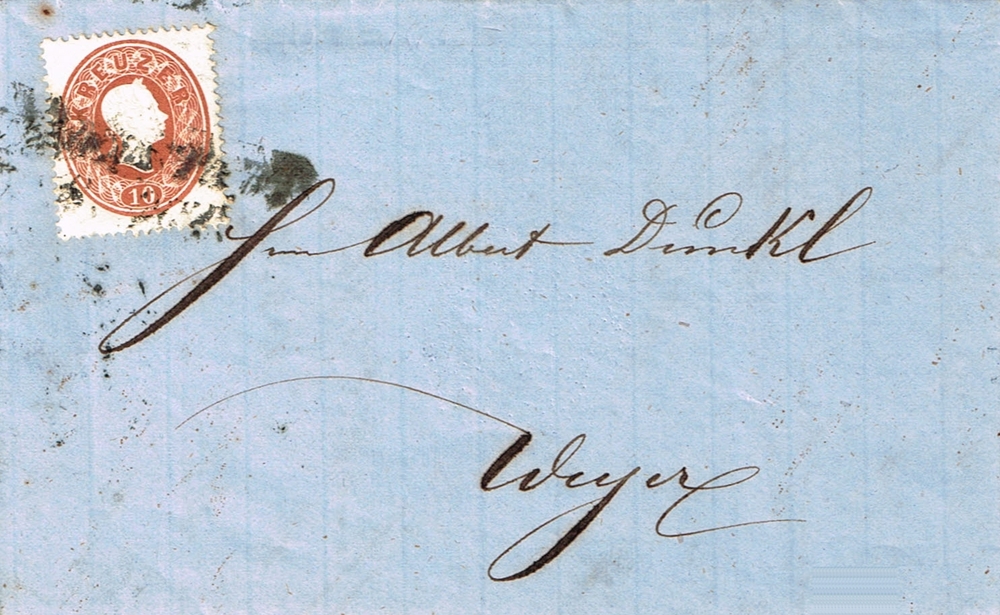 KREUZER
10
Herrn Albert Dunkl
Weyer